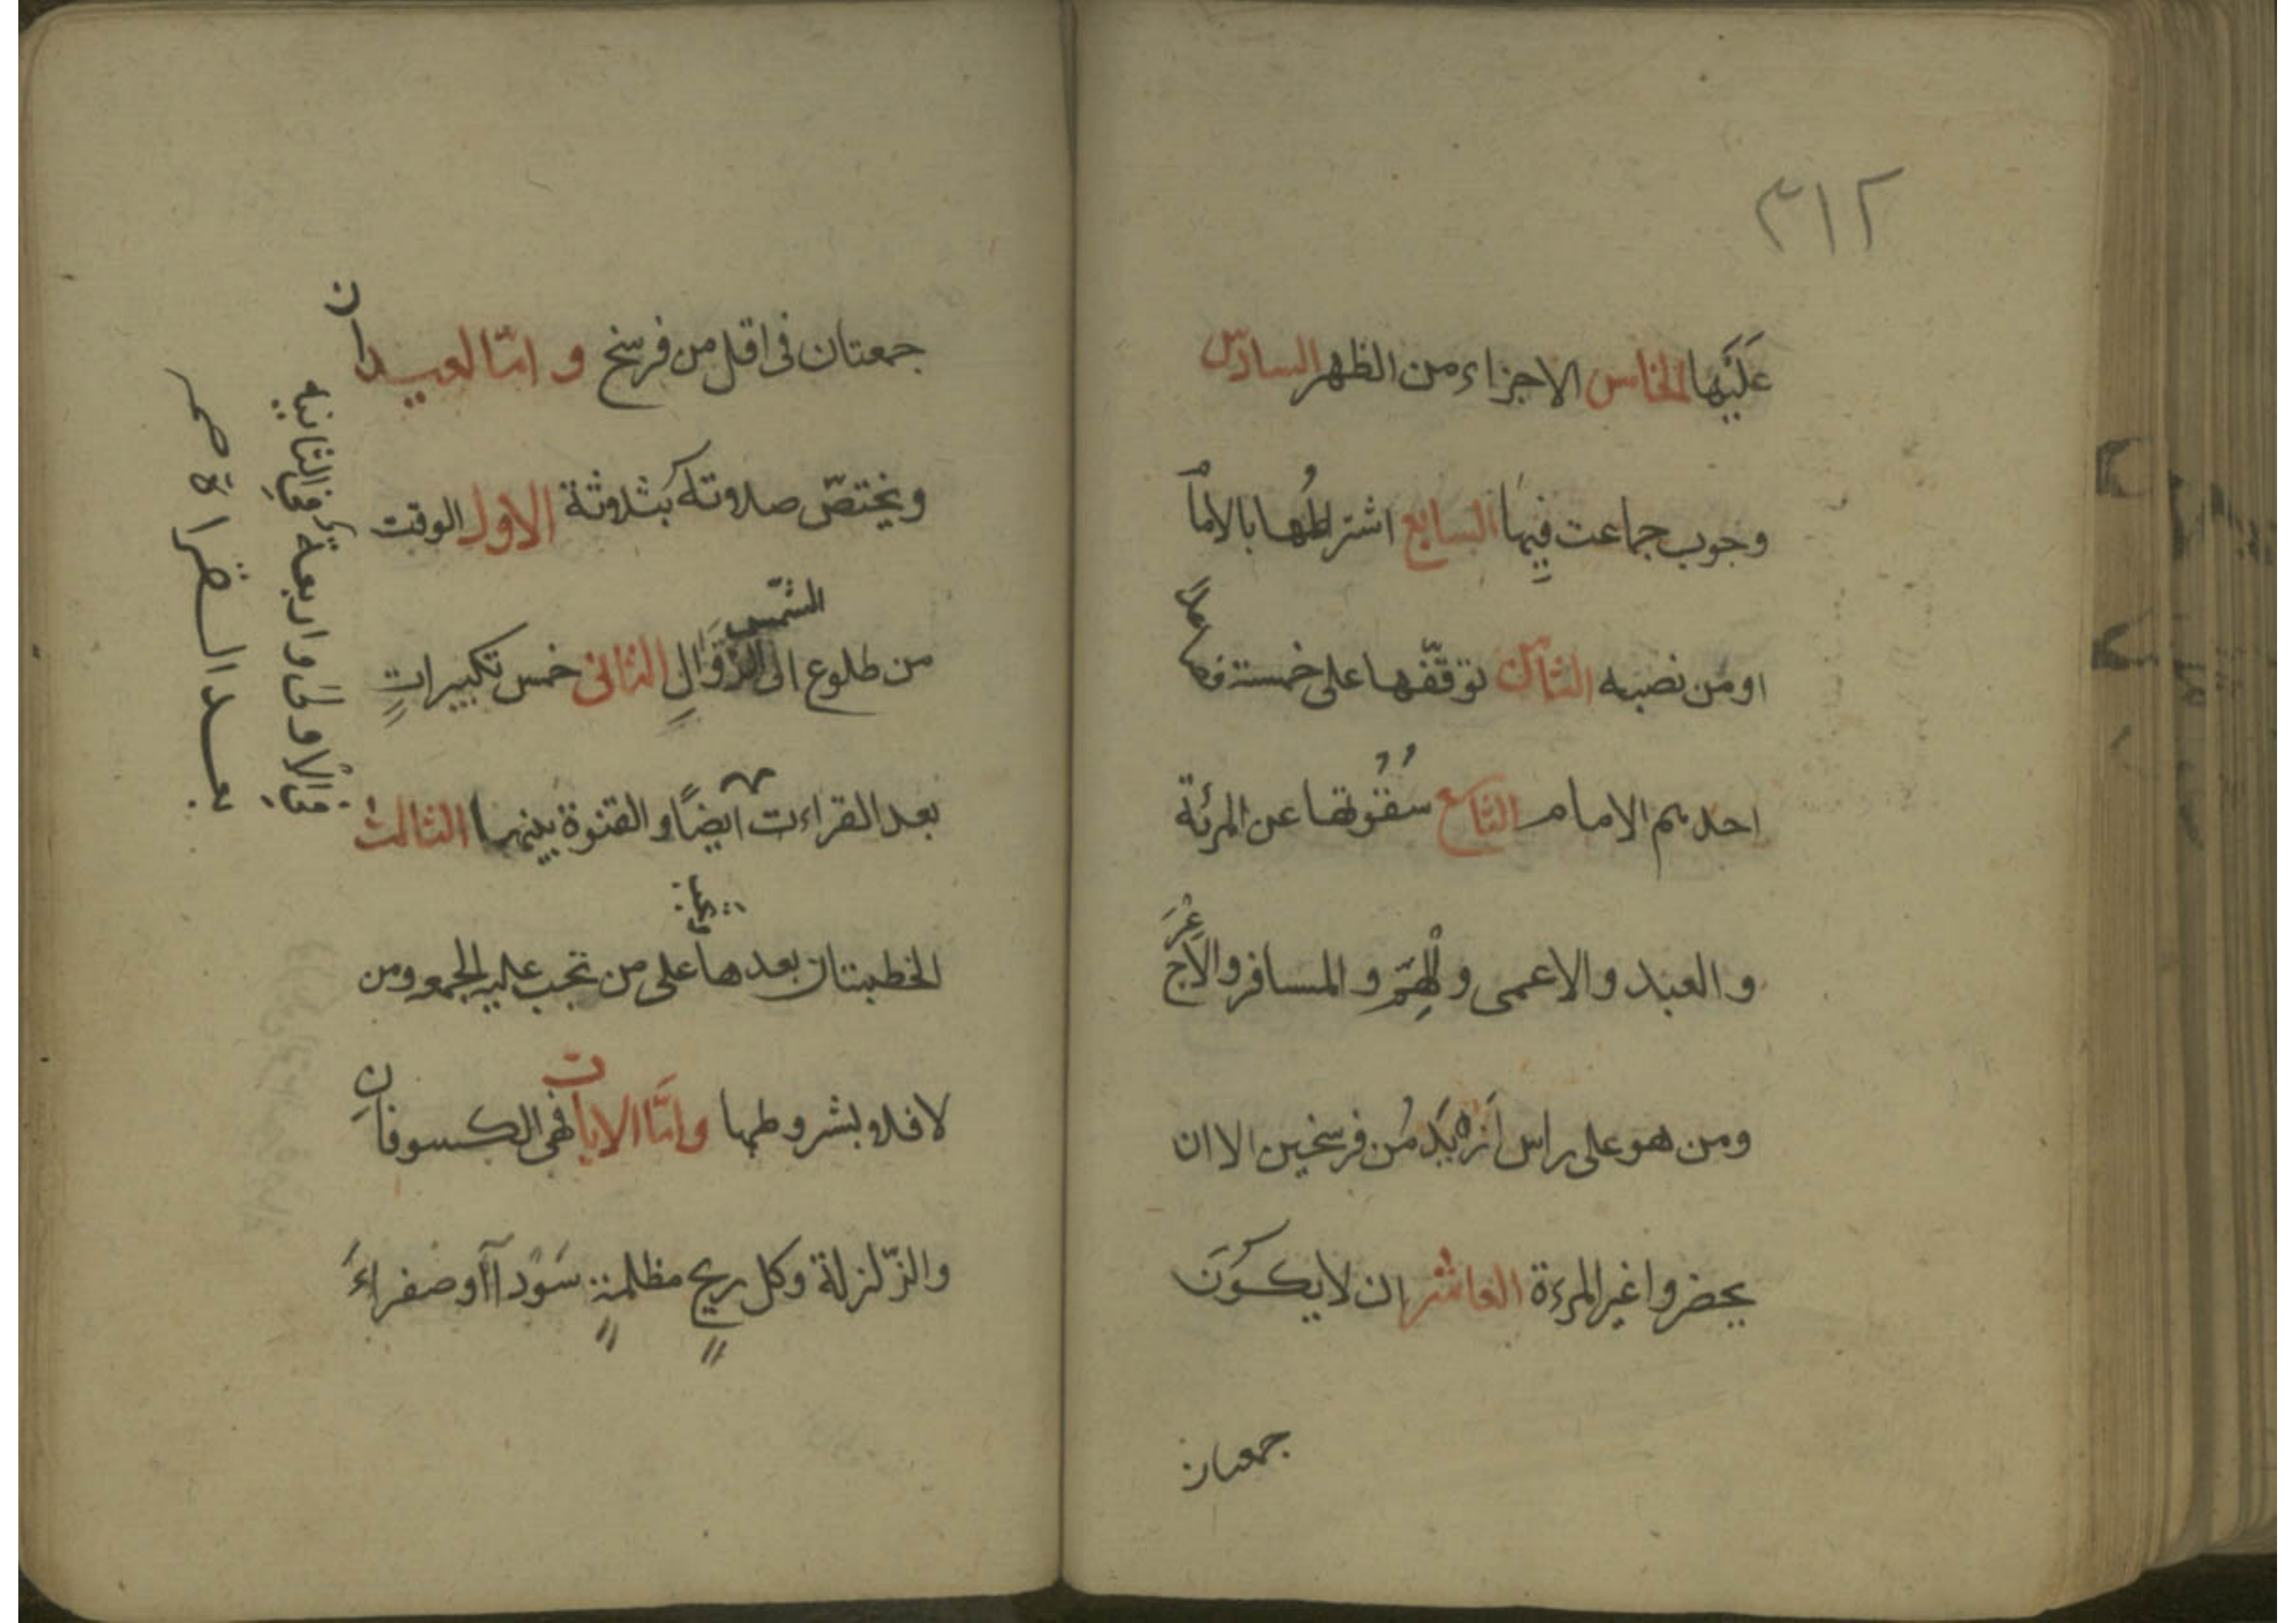 ٣١٢
عَلَيْهَا الخامس الاجزاء من الظهر السادس
وجوب جماعت فِيهَا السابع اشتراطُها بالامام
او من نصبه الثامن توقّفها على خمسة
احدهم الامام التاسع سُقُوتها عن المرئة
والعبد والاعمى والهِمّ والمسافر والاعْرَج
ومن هو على راس اَزْيَد مُن فرسخين الا ان
يحضروا غير المرءة العاشر ان لا يكوُنَ
جمعتان
جمعتان فى اقل من فرسخ و امّا العيدان
ويختصّ صلاوته بثلاثة الاول الوقت
من طلوع الشّمس الى الزَّوَالِ الثانى خمس تكبيراتٍ
بعد القراءت ايضًا و القنوة بينهما الثالث
الخطبتان بعدها على من تجب عليه الجمعه ومن
لا فلا و بشروطها وامَّا الايات فهى الكسوفانِ
والزّلزلة وكل ريحٍ مظلمةٍ سَوْدآ أو صفراءَ
فى الْاُولىَ و اربعة فِى الثانيه
بعد القراة